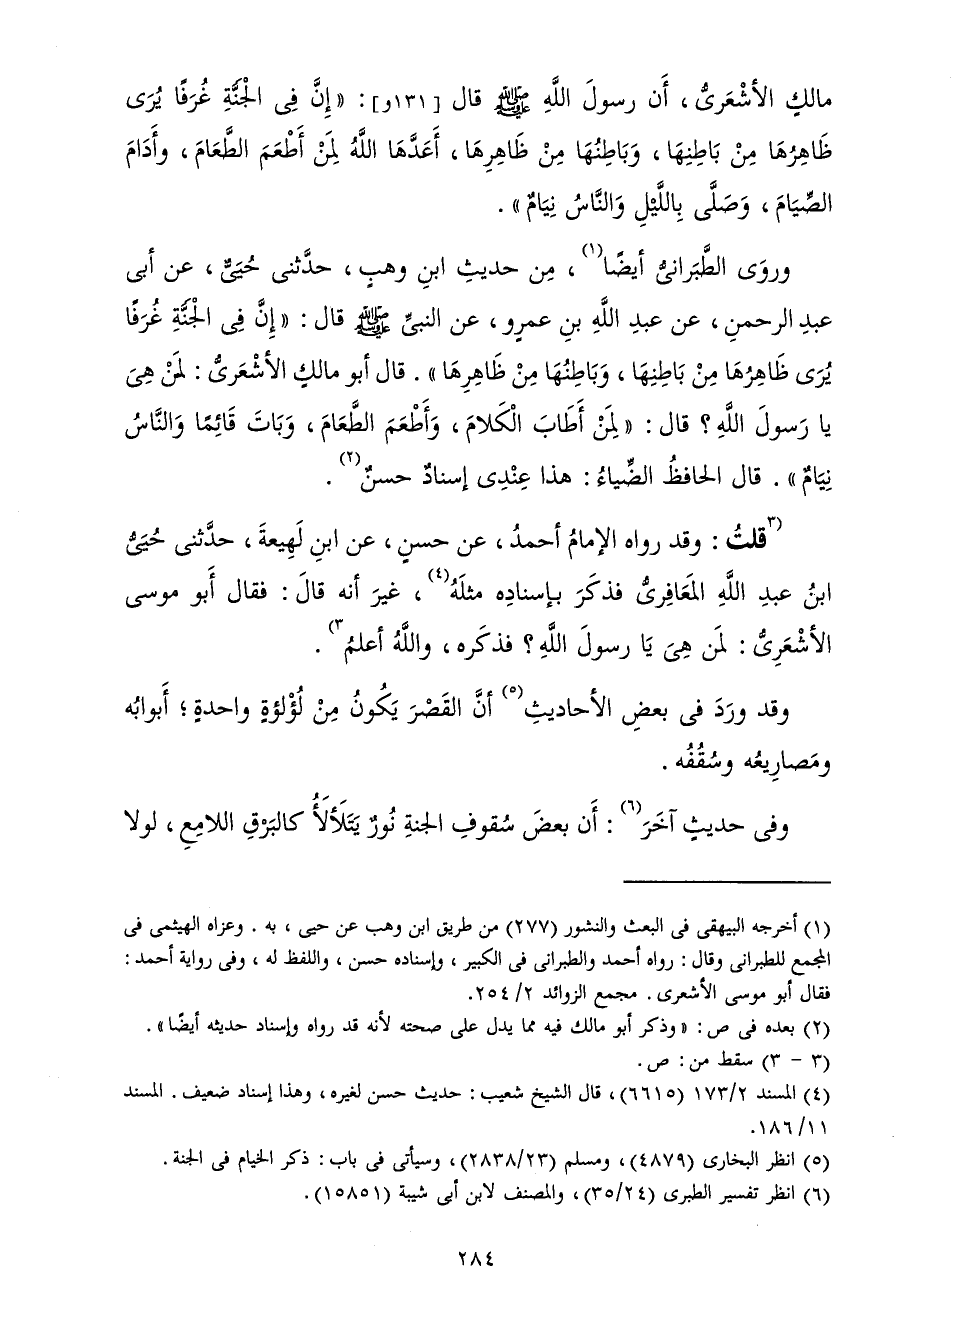 مالكٍ الأشْعَرىُّ، أن رسولَ اللَّهِ ﷺ قال [١٣١و]: «إِنَّ فِى الْجَنَّةِ غُرَفًا يُرَى
ظَاهِرُهَا مِنْ بَاطِنِهَا، وَبَاطِنُهَا مِنْ ظَاهِرِهَا، أَعَدَّهَا اللَّهُ لِمَنْ أَطْعَمَ الطَّعَامَ، وأَدَامَ
الصِّيَامَ، وَصَلَّى بِاللَّيْلِ وَالنَّاسُ نِيَامٌ».
وروَى الطَّبَرانىُّ أيضًا(١)، مِن حديثِ ابنِ وهبٍ، حدَّثنى حُيَىٌّ، عن أبى
عبدِ الرحمنِ، عن عبدِ اللَّهِ بنِ عمرٍو، عن النبىِّ ﷺ قال: «إِنَّ فِى الْجَنَّةِ غُرَفًا
يُرَى ظَاهِرُهَا مِنْ بَاطِنِهَا، وَبَاطِنُهَا مِنْ ظَاهِرِهَا». قال أبو مالكٍ الأشْعَرىُّ: لمَنْ هِىَ
يا رَسولَ اللَّهِ؟ قال: «لِمَنْ أَطَابَ الْكَلَامَ، وَأَطْعَمَ الطَّعَامَ، وَبَاتَ قَائِمًا وَالنَّاسُ
نِيَامٌ». قال الحافظُ الضِّياءُ: هذا عِنْدِى إسنادٌ حسنٌ(٢).
٣)قلتُ: وقد رواه الإمامُ أحمدُ، عن حسنٍ، عن ابنِ لَهِيعةَ، حدَّثنى حُيَىُّ
ابنُ عبدِ اللَّهِ المَعَافِرىُّ فذكَرَ بإسنادِه مثلَهُ(٤)، غيرَ أنه قالَ: فقال أَبو موسى
الأَشْعَرِىُّ: لمَن هِىَ يَا رسولَ اللَّهِ؟ فذكَره، واللَّهُ أعلمُ٣).
وقد ورَدَ فى بعضِ الأحاديثِ(٥) أنَّ القَصْرَ يَكُونُ مِنْ لُؤْلؤةٍ واحدةٍ؛ أَبوابُه
ومَصارِيعُه وسُقُفُه.
وفى حديثٍ آخَرَ(٦): أَن بعضَ سُقوفِ الجنةِ نُورٌ يَتَلَأْلَأُ كالبَرْقِ اللامِعِ، لولا
(١) أخرجه البيهقى فى البعث والنشور (٢٧٧) من طريق ابن وهب عن حيى، به. وعزاه الهيثمى فى
المجمع للطبرانى وقال: رواه أحمد والطبرانى فى الكبير، وإسناده حسن، واللفظ له، وفى رواية أحمد:
فقال أبو موسى الأشعرى. مجمع الزوائد ٢/٢٥٤.
(٢) بعده فى ص: «وذكر أبو مالك فيه مما يدل على صحته لأنه قد رواه وإسناد حديثه أيضًا».
(٣ - ٣) سقط من: ص.
(٤) المسند ٢/١٧٣ (٦٦١٥)، قال الشيخ شعيب: حديث حسن لغيره، وهذا إسناد ضعيف. المسند
١١/١٨٦.
(٥) انظر البخارى (٤٨٧٩)، ومسلم (٢٨٣٨/٢٣)، وسيأتى فى باب: ذكر الخيام فى الجنة.
(٦) انظر تفسير الطبرى (٣٥/٢٤)، والمصنف لابن أبى شيبة (١٥٨٥١).
٢٨٤